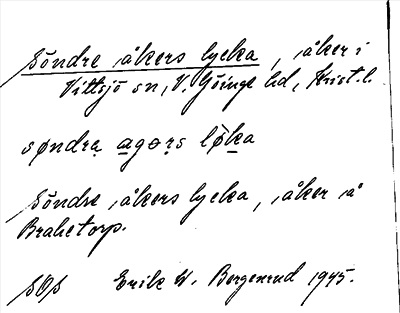 Söndre åkers lycka, åker i
Vittsjö sn, V. Göinge hd, Krist. l.
søndrạ a̲gərs lø̄ka
Söndre åkers lycka, åker å
Brahetorp.
SOS Erik W. Bergenrud 1945.